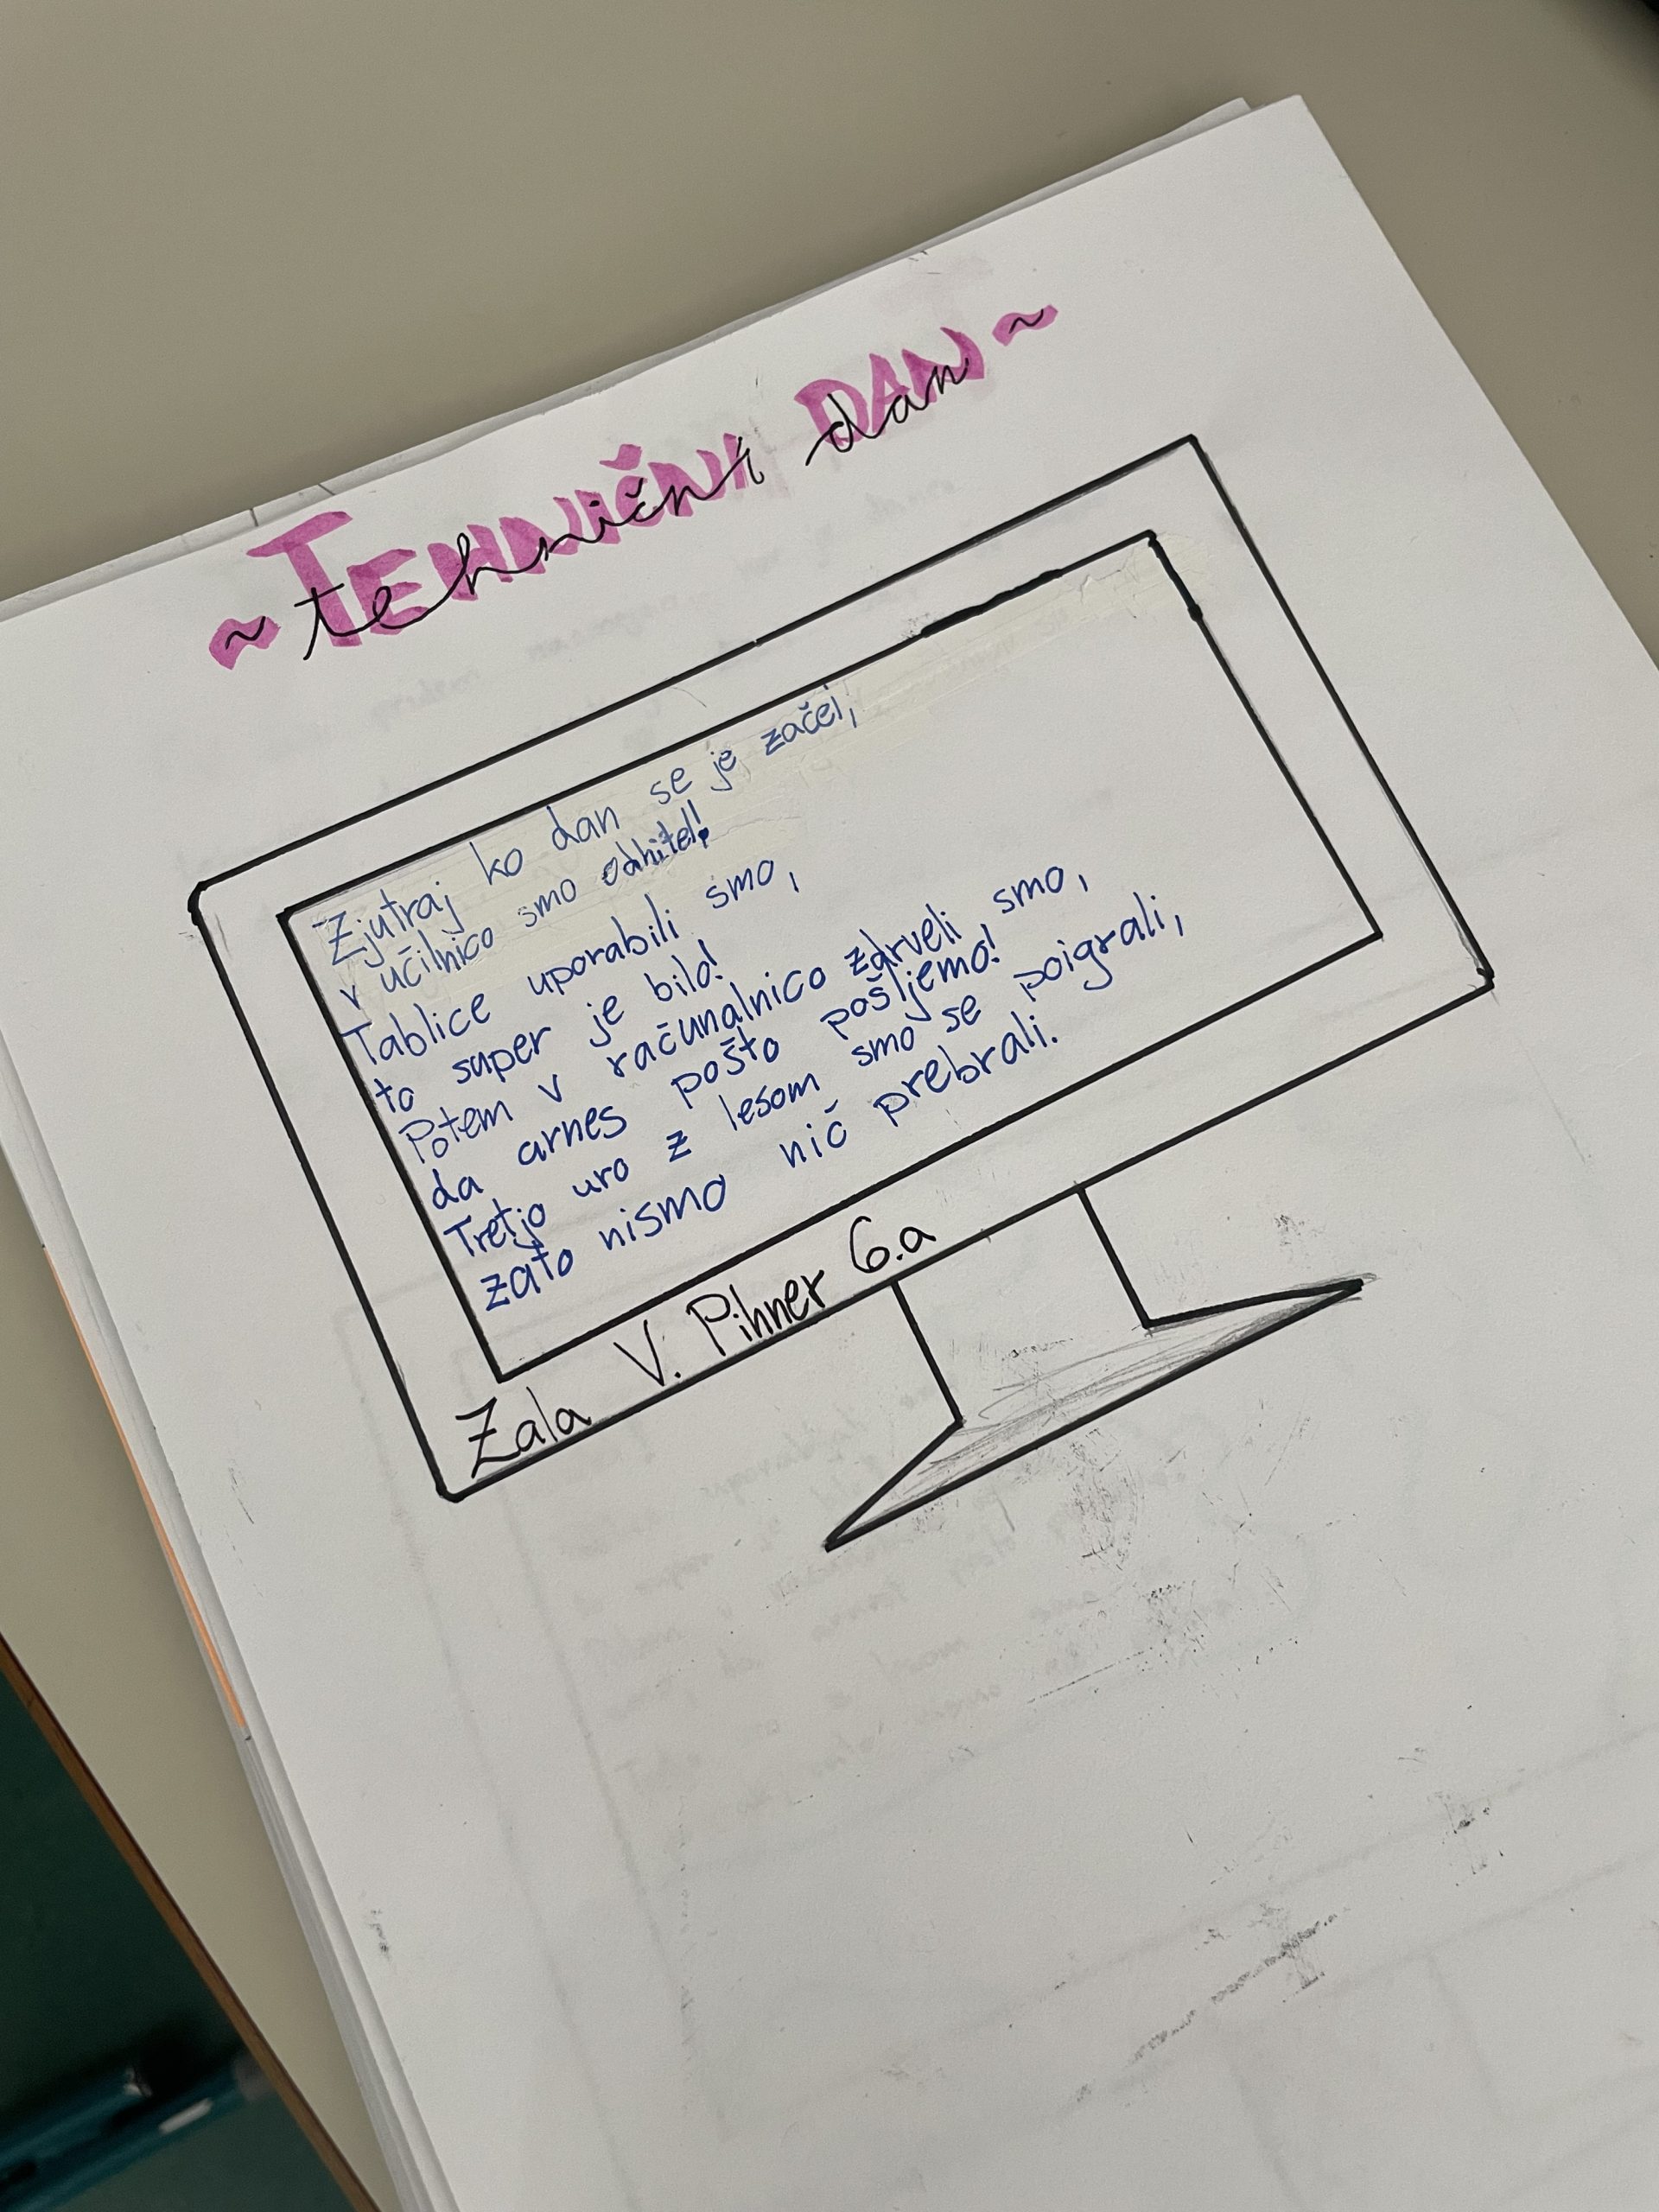 ~ TEHNIČNI DAN ~
tehnični dan
Zjutraj ko dan se je začel,
v učilnico smo odhitel!
Tablice uporabili smo,
to super je bilo!
Potem v računalnico zdrveli smo,
da arnes pošto pošljemo!
Tretjo uro z lesom smo se poigrali,
zato nismo nič prebrali.
Zala V. Pihner 6.a